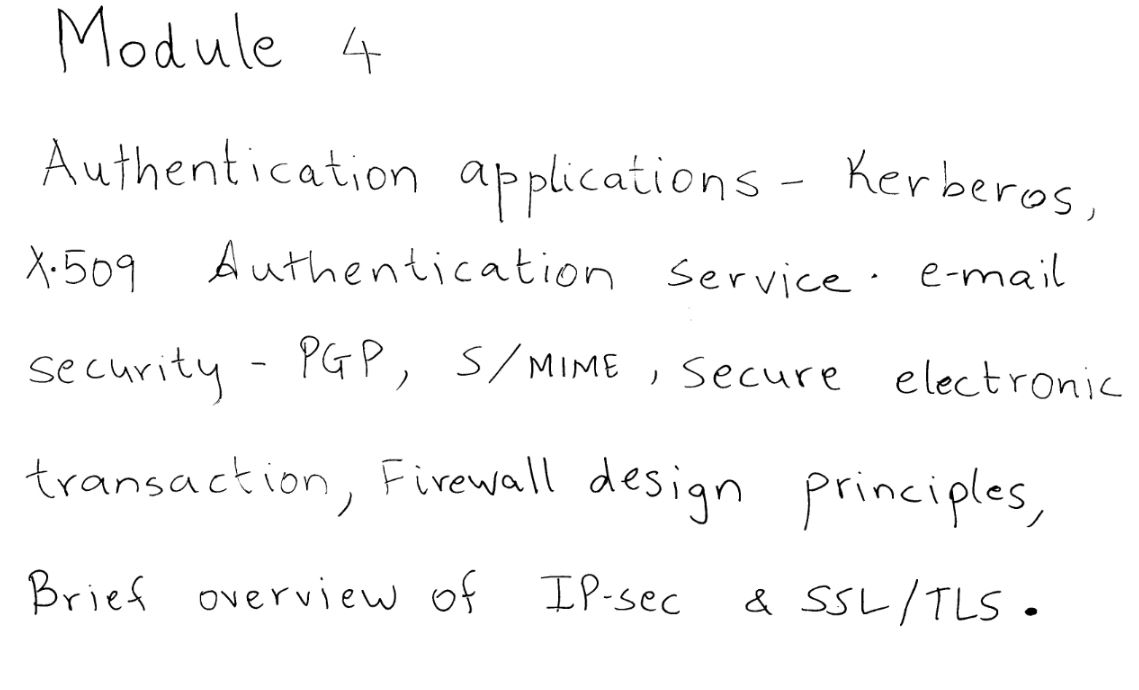 Module 4
Authentication applications - Kerberos,
X.509 Authentication service. e-mail
security - PGP, S/MIME, Secure electronic
transaction, Firewall design principles,
Brief overview of IP-sec & SSL/TLS.